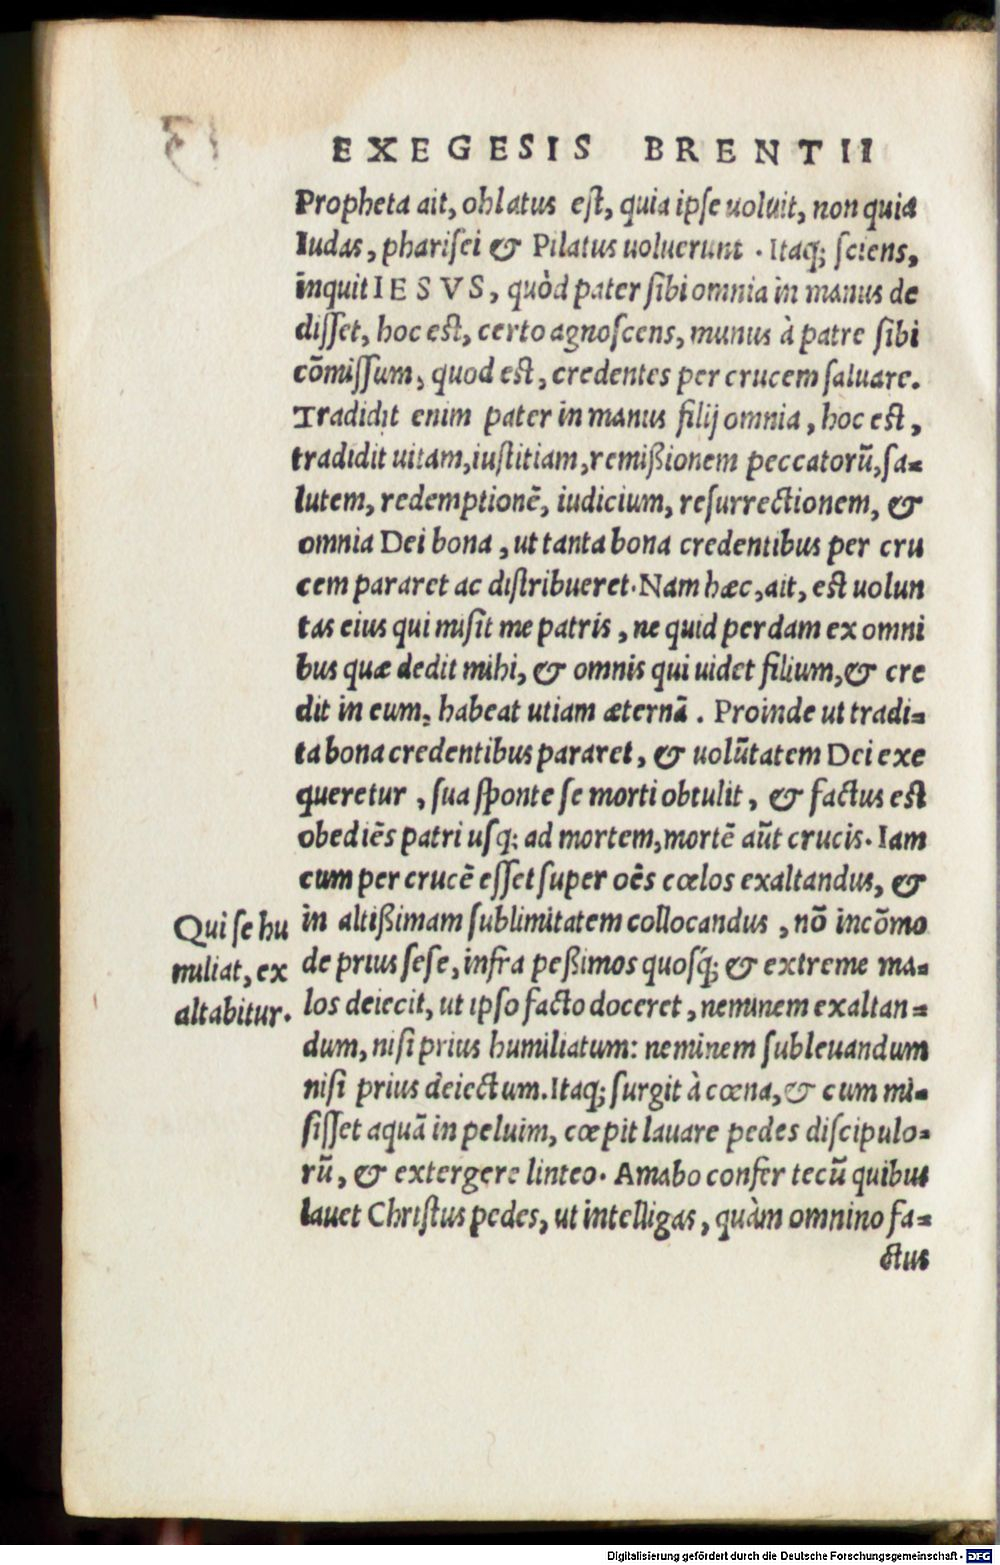 EXEGESIS BRENTII
Propheta ait, oblatus est, quia ipse uoluit, non quia
Iudas, pharisei & Pilatus uoluerunt . Itaq; sciens,
inquit IESVS, quòd pater sibi omnia in manus de
disset, hoc est, certo agnoscens, munus à patre sibi
cõmissum, quod est, credentes per crucem saluare.
Tradidit enim pater in manus filij omnia, hoc est,
tradidit uitam, iustitiam, remißionem peccatorũ, sa=
lutem, redemptionẽ, iudicium, resurrectionem, &
omnia Dei bona, ut tanta bona credentibus per cru
cem pararet ac distribueret. Nam hæc, ait, est uolun
tas eius qui misit me patris, ne quid perdam ex omni
bus quæ dedit mihi, & omnis qui uidet filium, & cre
dit in eum, habeat utiam æternã. Proinde ut tradi=
ta bona credentibus pararet, & uolũtatem Dei exe
queretur, sua sponte se morti obtulit, & factus est
obediẽs patri usq; ad mortem, mortẽ aũt crucis. Iam
cum per crucẽ esset super oẽs cœlos exaltandus, &
in altißimam sublimitatem collocandus, nõ incõmo
de prius sese, infra peßimos quosq́; & extreme ma=
los deiecit, ut ipso facto doceret, neminem exaltan=
dum, nisi prius humiliatum: neminem subleuandum
nisi prius deiectum. Itaq; surgit à cœna, & cum mi=
sisset aquã in peluim, cœpit lauare pedes discipulo=
rũ, & extergere linteo. Amabo confer tecũ quibus
lauet Christus pedes, ut intelligas, quàm omnino fa=
ctus
Qui se hu
miliat, ex
altabitur.
Digitalisierung gefördert durch die Deutsche Forschungsgemeinschaft - DFG